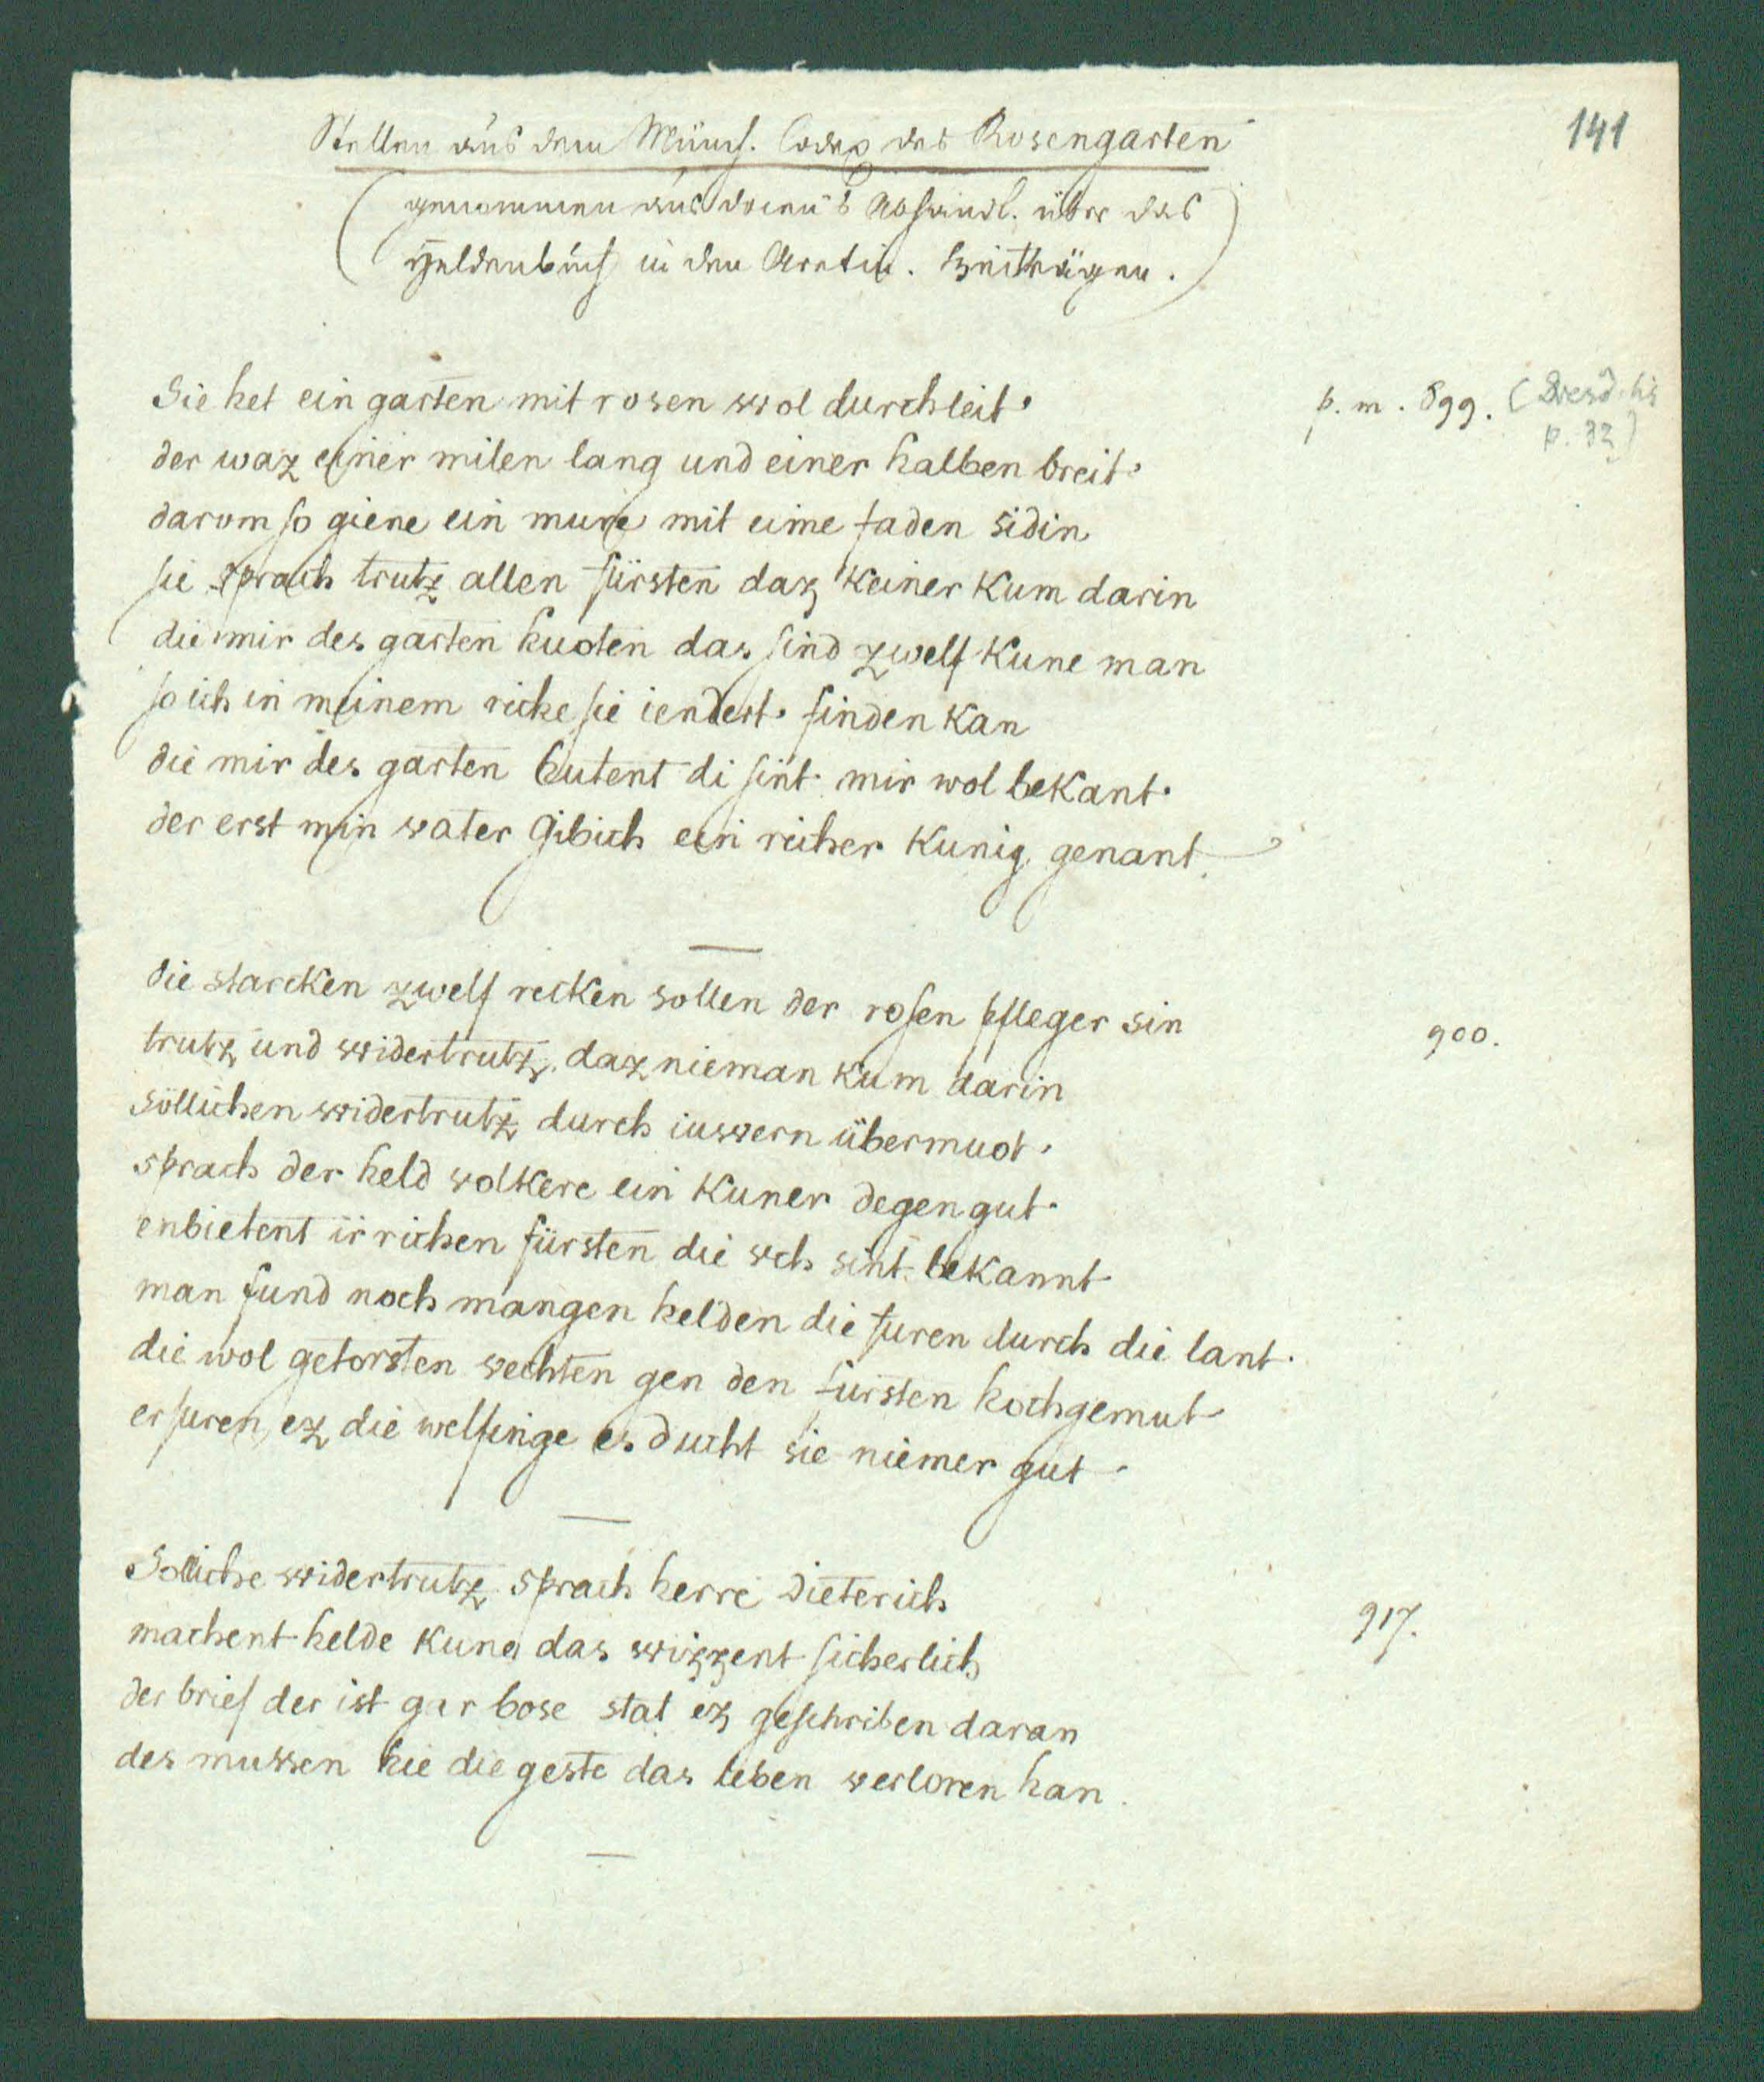 141
Stellen aus dem Münch. Codex des Rosengarten
(genommen aus Docens Abhandl. über das
Heldenbuch in den Aretin. Beiträgen.)
Sie het ein garten mit rosen wol durchleit.
p. m. 899. (Dresd. hs
p. 32)
der waz einer milen lang und einer halben breit.
darum so giene ein mure mit eime faden sidin
sie sprach trutz allen fürsten daz keiner kum darin
die mir des garten huoten das sind zwelf kune man
so ich in meinem riche sie iendert finden kan
die mir des garten hutent di sint mir wol bekant.
der erst min vater Gibich ein richer kunig genant.
die starcken zwelf recken sollen der rosen pfleger sin
900.
trutz und widertrutz, daz nieman kum darin
söllichen widertrutz durch iuwern übermuot.
sprach der held volkere ein kuner degen gut.
enbietent ir richen fürsten die vch sint bekannt
man fund noch mangen helden die furen durch die lant.
die wol getorsten vechten gen den fursten hochgemut
erfuren ez die welfinge es ducht sie niemer gut.
Solliche widertrutz sprach herre Dieterich
917.
machent helde kune das wizzent sicherlich
der brief der ist gar bose stat ez geschriben daran
des mussen hie die geste das leben verloren han.